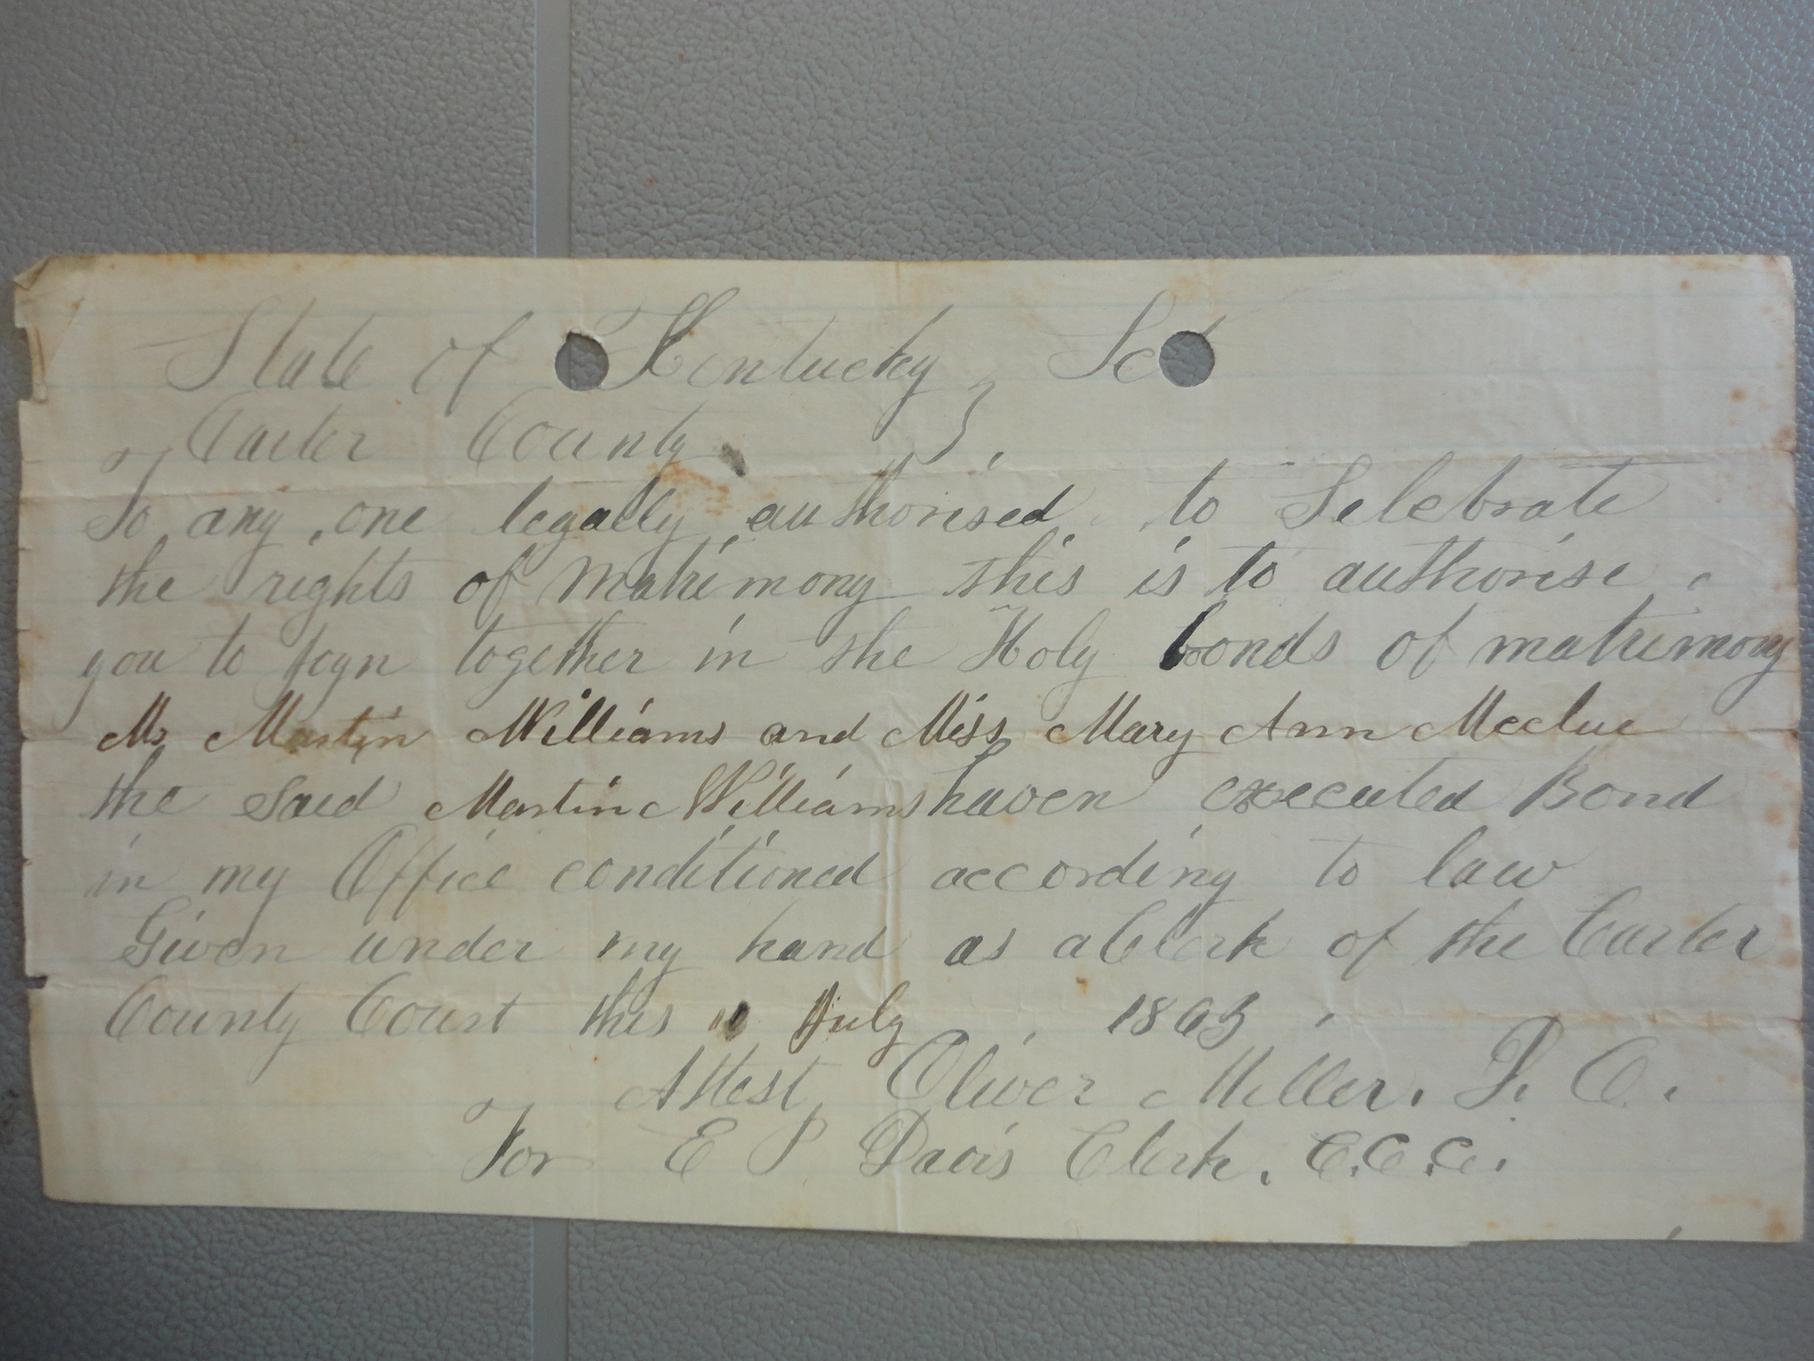 State of Kentucky } Sct
Carter County
To any one legally authorised to Selebrate
the rights of matrimony this is to authorise
you to joyn together in the Holy bonds of matrimony
Mr Martin Williams and Miss Mary Ann Mcclue
the said Martin Williams haven executed Bond
in my Office conditioned according to law
Given under my hand as a Clerk of the Carter
County Court this July 1863
Attest Oliver Miller. D. C.
For E P Davis Clerk. C.C.C.